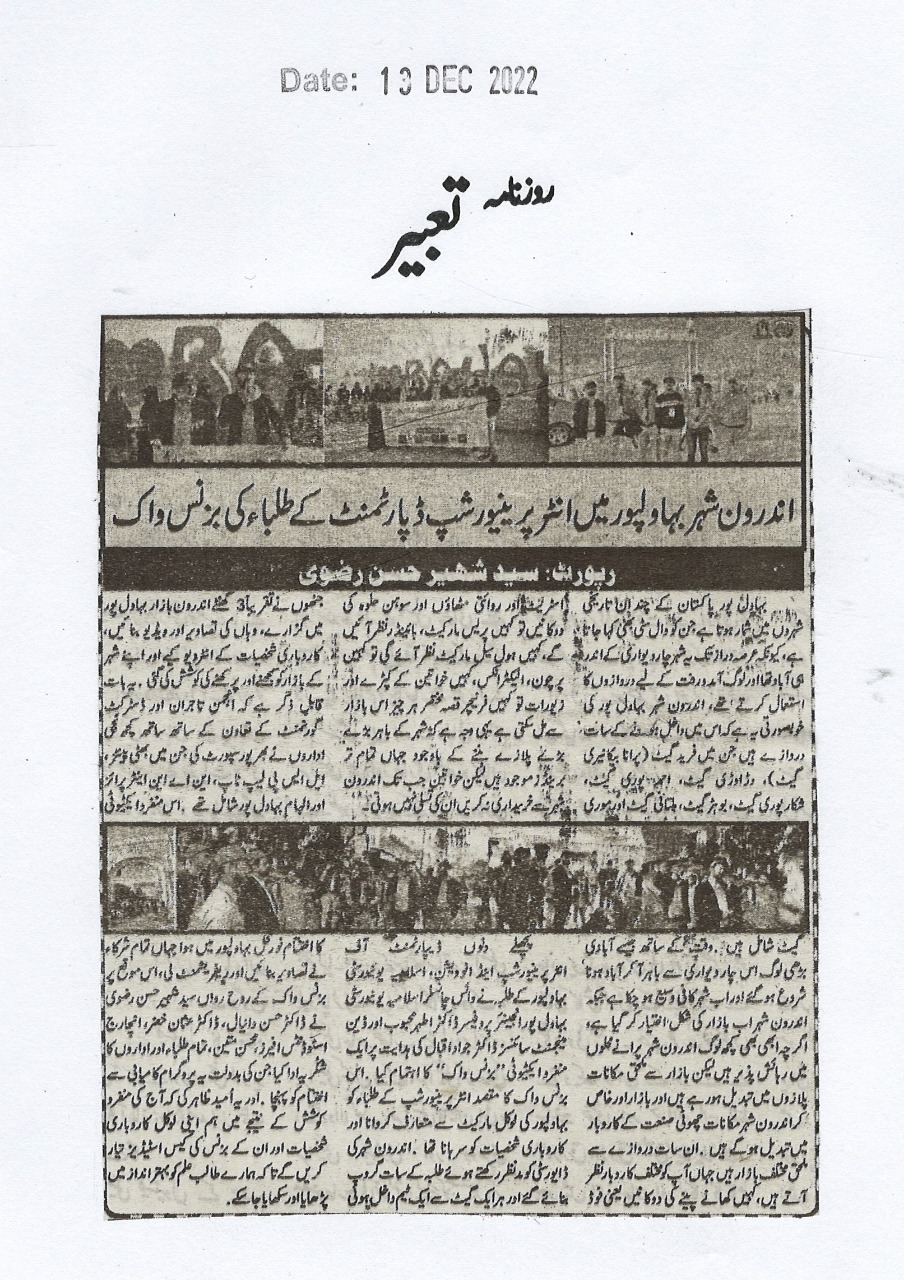 Date: 13 DEC 2022
روزنامہ تعبیر
اندرون شہر بہاولپور میں انٹرپرینیورشپ ڈپارٹمنٹ کے طلباء کی بزنس واک
رپورٹ: سید شھیر حسن رضوی
بہاول پور پاکستان کے چند ان تاریخی
شہروں میں شمار ہوتا ہے جن کو وال سٹی بھی کہا جاتا
ہے، کیونکہ عرصہ دراز تک یہ شہر چار دیواری کے اندر
ہی آباد تھا اور لوگ آمد ورفت کے لیے دروازوں کا
استعمال کرتے تھے، اندرون شہر بہاول پور کی
خوبصورتی یہ ہے کہ اس میں داخل ہونے کے سات
دروازے ہیں جن میں فرید گیٹ (پرانا بیکانیری
گیٹ)، دڑاوڑی گیٹ، احمد پوری گیٹ،
شکار پوری گیٹ، بوہڑ گیٹ، ملتانی گیٹ اور موری
گیٹ شامل ہیں۔ وقت کے ساتھ جیسے آبادی
بڑھی لوگ اس چار دیواری سے باہر آکر آباد ہونا
شروع ہوگئے اور اب شہر کافی وسیع ہو چکا ہے جبکہ
اندرون شہر اب بازار کی شکل اختیار کر گیا ہے،
اگرچہ ابھی بھی کچھ لوگ اندرون شہر پرانے محلوں
میں رہائش پذیر ہیں لیکن بازار سے ملحق مکانات
پلازوں میں تبدیل ہو رہے ہیں اور بازار اور خاص
کر اندرون شہر مکانات چھوٹی صنعت کے کاروبار
میں تبدیل ہو گے ہیں۔ ان سات دروازے سے
ملحق مختلف بازار ہیں جہاں آپ کو مختلف کاروبار نظر
آتے ہیں، کہیں کھانے پینے کی دوکانیں یعنی فوڈ
اسٹریٹ اور روائتی مٹھاؤں اور سوہن حلوہ کی
دوکانیں تو کہیں پریس مارکیٹ، بائینڈر نظر آئیں
گے، کہیں ہول سیل مارکیٹ نظر آئے گی تو کہیں
پرچون، الیکٹرانکس، کہیں خواتین کے کپڑے اور
زیورات تو کہیں فرنیچر قصہ مختصر ہر چیز اس بازار
سے مل سکتی ہے یہی وجہ ہے کہ شہر کے باہر بڑے
بڑے پلازے بننے کے باوجود جہاں تمام تر
برینڈز موجود ہیں لیکن خواتین جب تک اندرون
شہر سے خریداری نہ کریں ان کی تسلی نہیں ہوتی۔
پچھلے دنوں ڈیپارٹمنٹ آف
انٹرپرینیورشپ اینڈ انوویشن، اسلامیہ یونیورسٹی
بہاولپور کے طلبہ نے وائس چانسلر اسلامیہ یونیورسٹی
بہاول پور انجینئر پروفیسر ڈاکٹر اطہر محبوب اور ڈین
مینجمنٹ سائنسز ڈاکٹر جواد اقبال کی ہدایت پر ایک
منفرد ایکٹیوٹی "بزنس واک" کا اہتمام کیا۔ اس
بزنس واک کا مقصد انٹرپرینیورشپ کے طلباء کو
بہاولپور کی لوکل مارکیٹ سے متعارف کروانا اور
کاروباری شخصیات کو سراہانا تھا۔ اندرون شہر کی
ڈائیورسٹی کو مدنظر رکھتے ہوئے طلبہ کے سات گروپ
بنائے گئے اور ہر ایک گیٹ سے ایک ٹیم داخل ہوئی
جنھوں نے تقریباً 3 گھنٹے اندرون بازار بہاول پور
میں گزارے، وہاں کی تصاویر اور ویڈیو بنائیں،
کاروباری شخصیات کے انٹرویو کیے اور اپنے شہر
کے بازار کو سمجھنے اور پرکھنے کی کوشش کی گئی، یہ بات
قابل ذکر ہے کہ انجمن تاجران اور ڈسٹرکٹ
گورنمنٹ کے تعاون کے ساتھ ساتھ کچھ نجی
اداروں نے بھرپور سپورٹ کی جن میں بھٹی پینٹر،
ایل ایس پی لیپ ٹاپ، این اے این انٹرپرائز
اور الہام بہاول پور شامل تھے۔ اس منفرد ایکٹیوٹی
کا اختتام نور محل بہاولپور میں ہوا جہاں تمام شرکاء
نے تصاویر بنائیں اور ریفریشمنٹ لی، اس موقع پر
بزنس واک کے روح رواں سید شھیر حسن رضوی
نے ڈاکٹر حسن دانیال، ڈاکٹر عثمان خضر، انچارج
اسٹوڈنٹس افیرز، محسن متین، تمام طلباء اور اداروں کا
شکریہ ادا کیا جن کی بدولت یہ پروگرام کامیابی سے
اختتام کو پہنچا۔ اور یہ اُمید ظاہر کی کہ آج کی منفرد
کوشش کے نتیجے میں ہم اپنی لوکل کاروباری
شخصیات اور ان کے بزنس کی کیس اسٹیڈیز تیار
کریں گے تاکہ ہمارے طالب علم کو بہتر انداز میں
پڑھایا اور سکھایا جا سکے۔